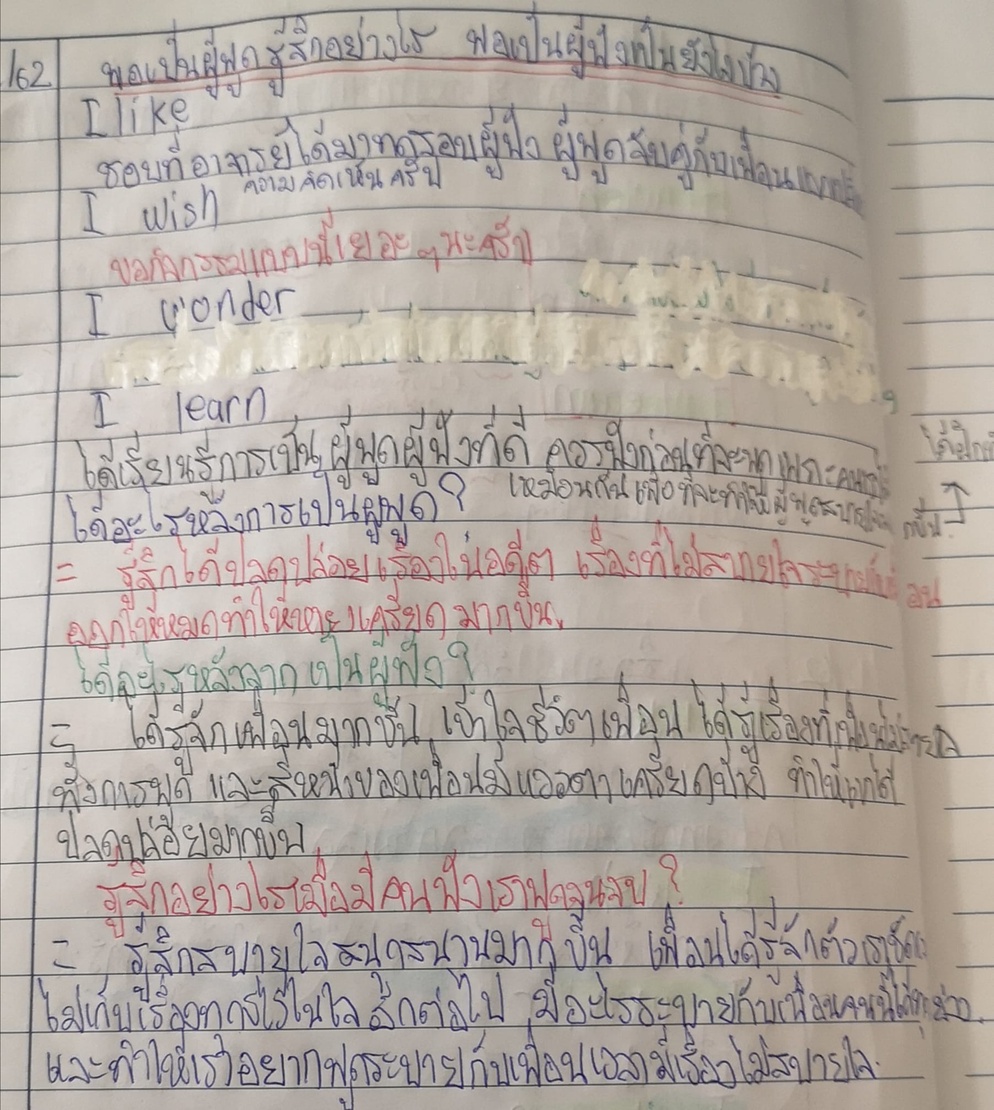 /62
พอเป็นผู้พูดรู้สึกอย่างไร พอเป็นผู้ฟังเป็นยังไงบ้าง
I like
ชอบที่อาจารย์ได้มาทดสอบผู้ฟัง ผู้พูดจับคู่กับเพื่อน
ความคิดเห็นครับ
I wish
ขอกิจกรรมแบบนี้เยอะๆนะครับ
I wonder
I learn
ได้เรียนรู้การเป็นผู้พูดผู้ฟังที่ดี ควรฟังก่อนที่จะพูด
เหมือนกันเพื่อที่จะทำให้ผู้พูดสบายใจ
ได้อะไรหลังการเป็นผู้พูด?
= รู้สึกได้ปลดปล่อยเรื่องในอดีต เรื่องที่ไม่สบายใจ
ออกให้หมดทำให้หายเครียดมากขึ้น
ได้อะไรหลังจากเป็นผู้ฟัง?
= ได้รู้จักเพื่อนมากขึ้น เข้าใจชีวิตเพื่อน ได้รู้เรื่องที่
ทั้งการพูด และสีหน้าของเพื่อนมีแววตาเครียดบ้าง ทำให้
ปลดปล่อยมากขึ้น
รู้สึกอย่างไรเมื่อมีคนฟังเราพูดจนจบ?
= รู้สึกสบายใจสนุกสนานมากขึ้น เพื่อนได้รู้จักตัวเรา
ไม่เก็บเรื่อง ไว้ในใจอีกต่อไป มีอะไรระบายกับเพื่อนคนนี้ได้ทุกอย่าง
และทำให้เราอยากพูดระบายกับเพื่อนเวลามีเรื่องไม่สบายใจ